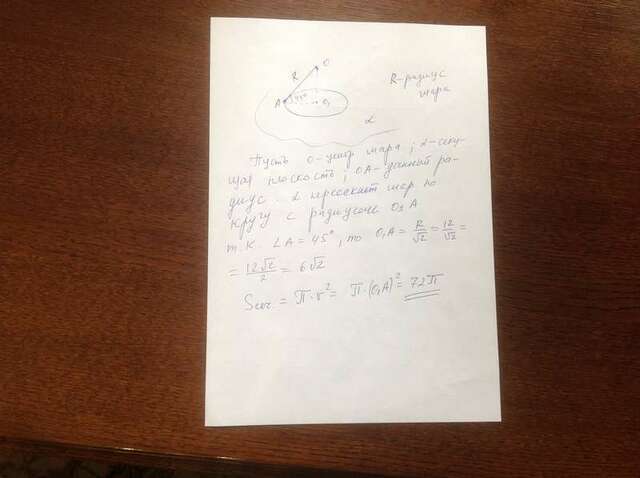 O
R
A 45° O₁
α
R-радиус
шара
Пусть O-центр шара; α-секу-
щая плоскость; OA-данный ра-
диус. α пересекает шар по
кругу с радиусом O₁A
т.к. ∠A = 45°, то O₁A = R/√2 = 12/√2 =
= 12√2/2 = 6√2
Sсеч. = π·r² = π·(O₁A)² = 72π